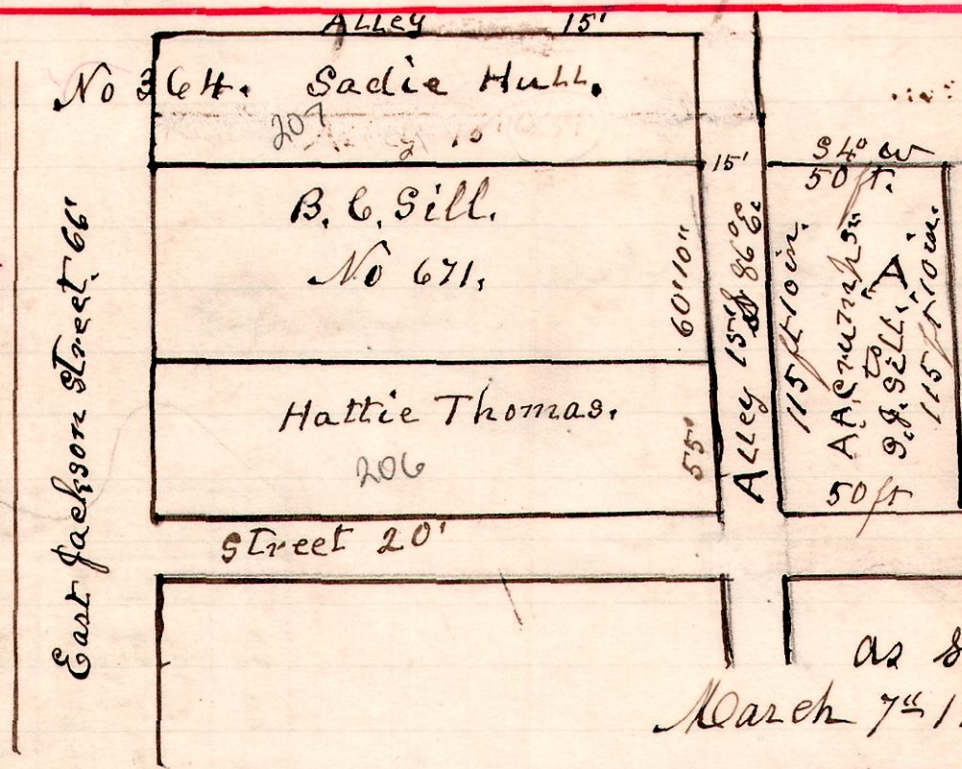 Alley 15'
No 364. Sadie Hull.
207
15'
B. C. Sill.
No 671.
60'10"
Hattie Thomas.
206
55'
Street 20'
East Jackson Street. 66'
Alley 15' N 86° E.
S 4° W
50 ft.
115 ft 10 in.
A. A. Crumpton
to
S. J. Sill.
115 ft 10 in.
50 ft
as
March 7th 1